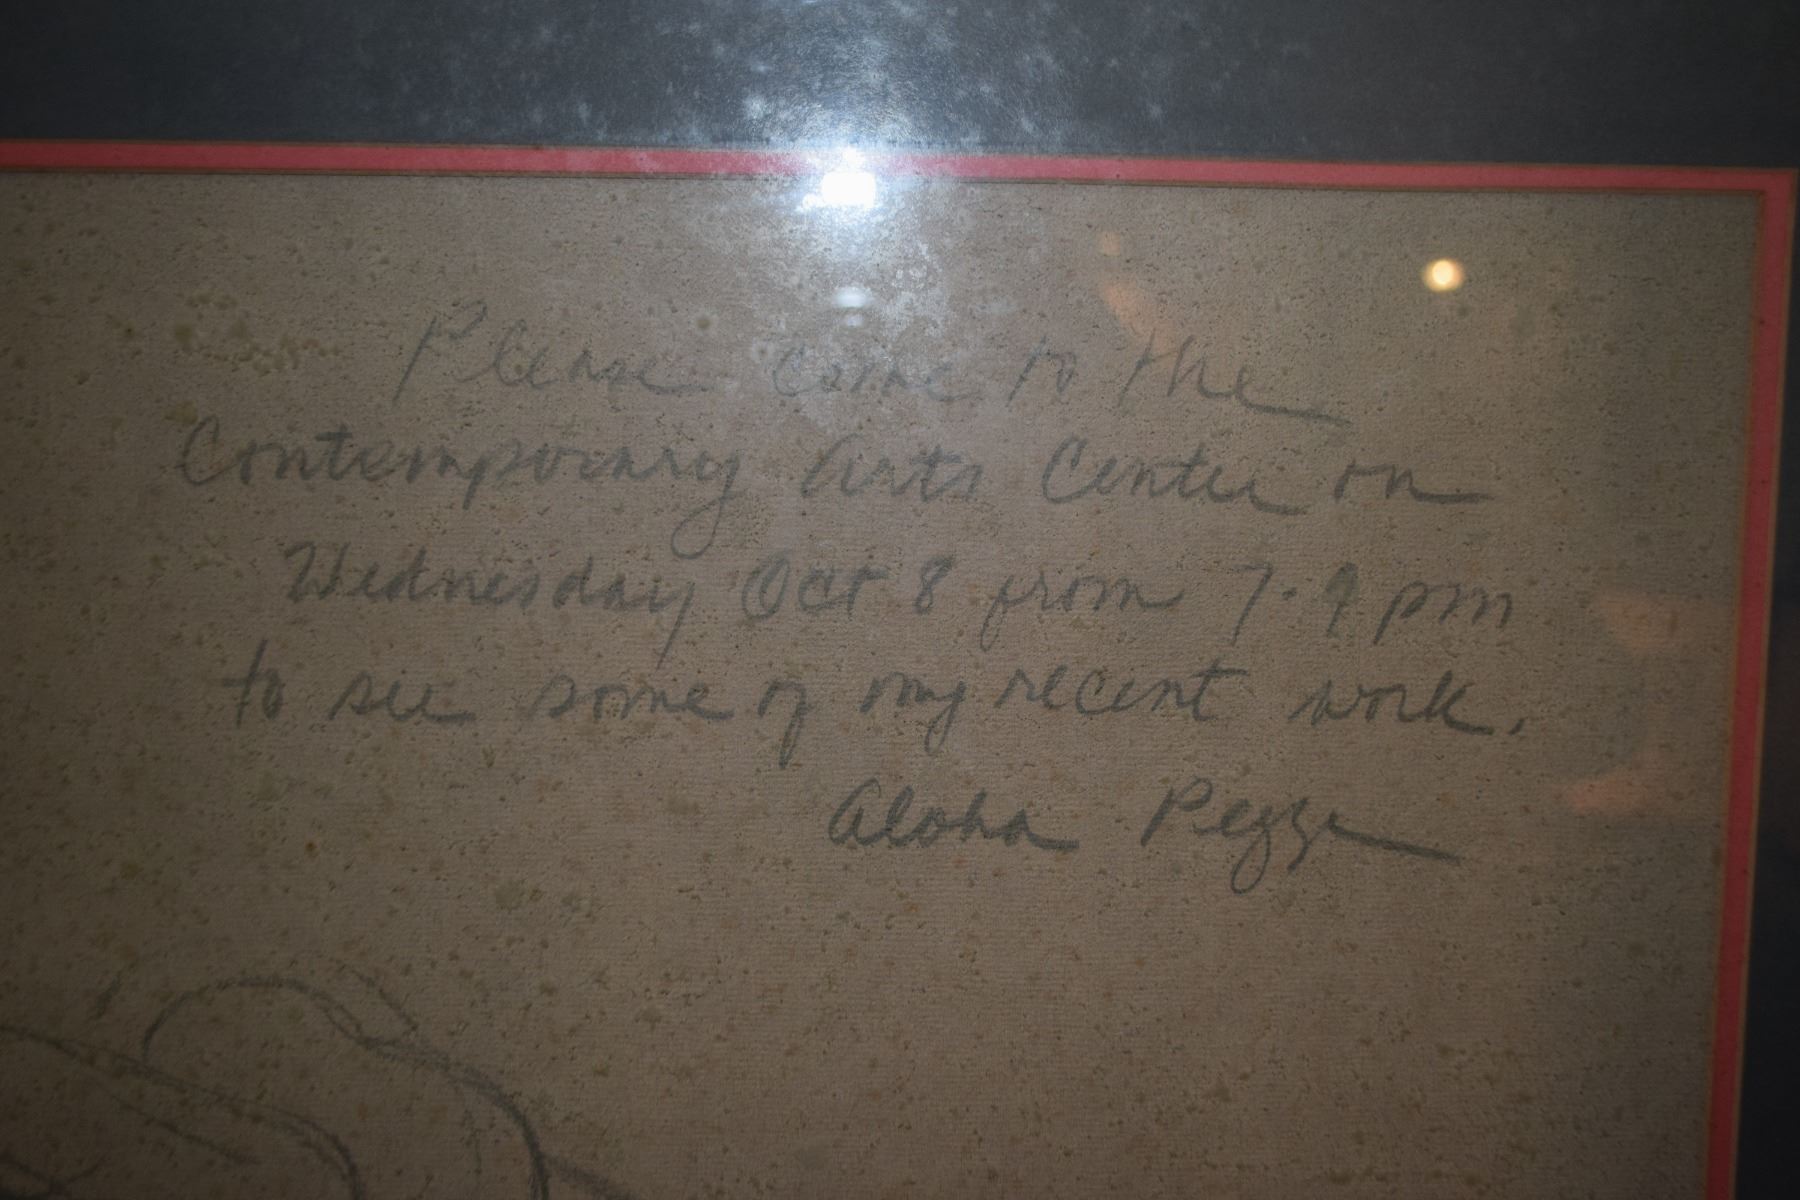 Please come to the
Contemporary Arts Center on
Wednesday Oct 8 from 7-9 pm
to see some of my recent work.
Aloha